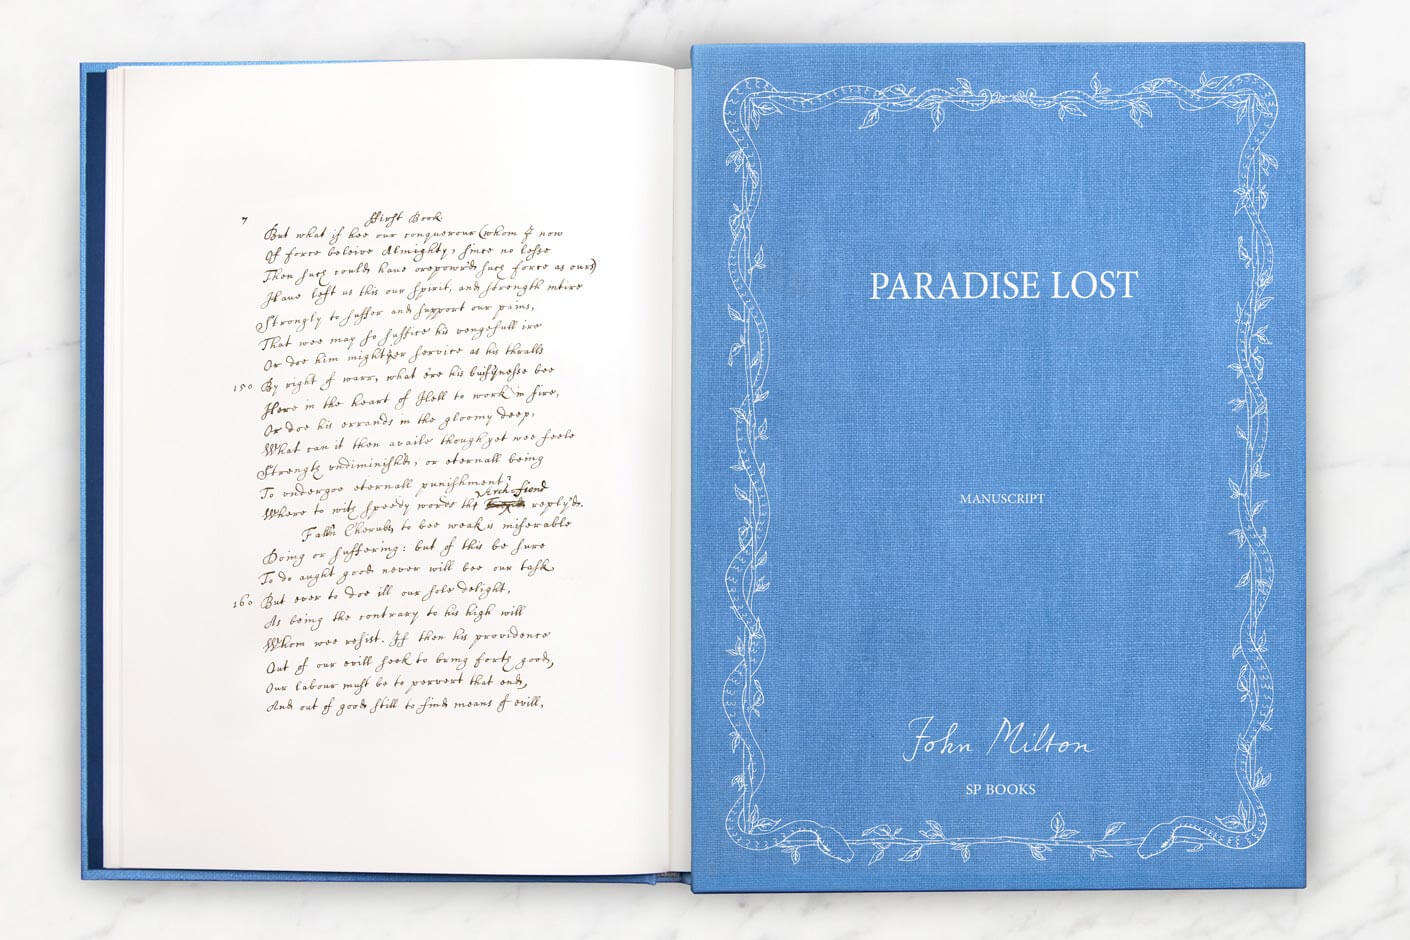 7
First Book
But what if hee our conquerour (whom I now
Of force beleive Almighty, since no lesse
Then such could have orepow'rd such force as ours)
Have left us this our spirit, and strength intire
Strongly to suffer and support our pains,
That wee may so suffice his vengefull ire
Or doe him mightier service as his thralls
150 By right of warr, what ere his businesse bee
Here in the heart of Hell to work in fire,
Or doe his errands in the gloomy deep;
What can it then availe though yet wee feele
Strength undiminisht, or eternall being
To undergoe eternall punishment?
Arch-fiend
Whereto with speedy words the reply'd.
Fall'n Cherub, to bee weak is miserable
Doing or suffering: but of this be sure
To do aught good never will bee our task
160 But ever to doe ill our sole delight,
As being the contrary to his high will
Whom wee resist. If then his providence
Out of our evill seek to bring forth good,
Our labour must be to pervert that end,
And out of good still to find means of evill,
PARADISE LOST
MANUSCRIPT
John Milton
SP BOOKS